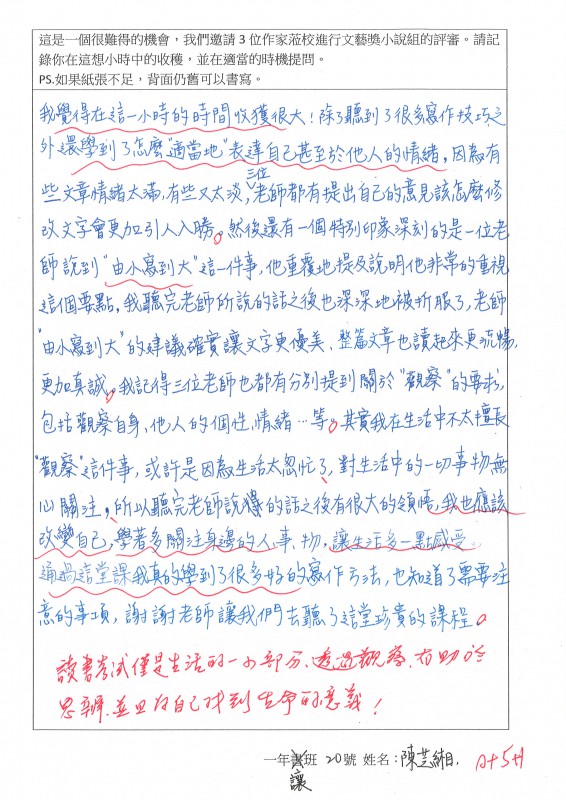 這是一個很難得的機會，我們邀請 3 位作家蒞校進行文藝獎小說組的評審。請記
錄你在這想小時中的收穫，並在適當的時機提問。
PS.如果紙張不足，背面仍舊可以書寫。
我覺得在這一小時的時間收獲很大！除了聽到了很多寫作技巧之
外還學到了怎麼"適當地"表達自己甚至於他人的情緒，因為有
些文章情緒太滿，有些又太淡，三位老師都有提出自己的意見該怎麼修
改文字會更加引人入勝。然後還有一個特別印象深刻的是一位老
師說到"由小寫到大"這一件事，他重覆地提及說明他非常的重視
這個要點，我聽完老師所說的話之後也深深地被折服了，老師
"由小寫到大"的建議確實讓文字更優美、整篇文章也讀起來更流暢，
更加真誠。我記得三位老師也都有分別提到關於"觀察"的要求，
包括觀察自身、他人的個性、情緒…等。其實我在生活中不太擅長
"觀察"這件事，或許是因為生活太忽忙了，對生活中的一切事物無
心關注，所以聽完老師說的話之後有很大的領悟，我也應該
改變自己，學著多關注身邊的人、事、物，讓生活多一點感受。
通過這堂課我真的學到了很多好的寫作方法，也知道了需要注
意的事項，謝謝老師讓我們去聽了這堂珍貴的課程。
讀書考試僅是生活的一小部分、透過觀察、有助於
思辨、並且為自己找到生命的意義！
一年 班 20號 姓名：陳芝緗.
讓
A+5H